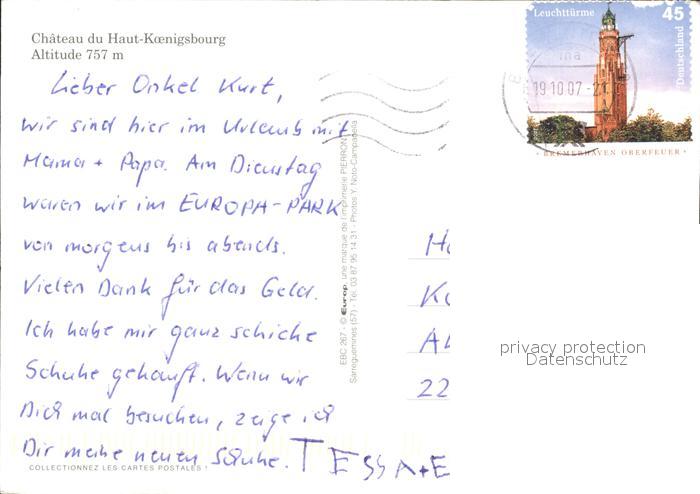 Château du Haut-Kœnigsbourg
Altitude 757 m
Lieber Onkel Kurt,
wir sind hier im Urlaub mit
Mama + Papa. Am Dienstag
waren wir im EUROPA-PARK
von morgens bis abends.
Vielen Dank für das Geld.
Ich habe mir ganz schicke
Schuhe gekauft. Wenn wir
Dich mal besuchen, zeige ich
Dir meine neuen Schuhe. TESSA+E
COLLECTIONNEZ LES CARTES POSTALES !
EBC 267 - © Europ, une marque de l'imprimerie PIERRON
Sarreguemines (57) - Tél. 03 87 95 14 31 - Photos Y. Noto-Campanella
Leuchttürme 45
Deutschland
19.10.07-21
BREMERHAVEN OBERFEUER
22
privacy protection
Datenschutz